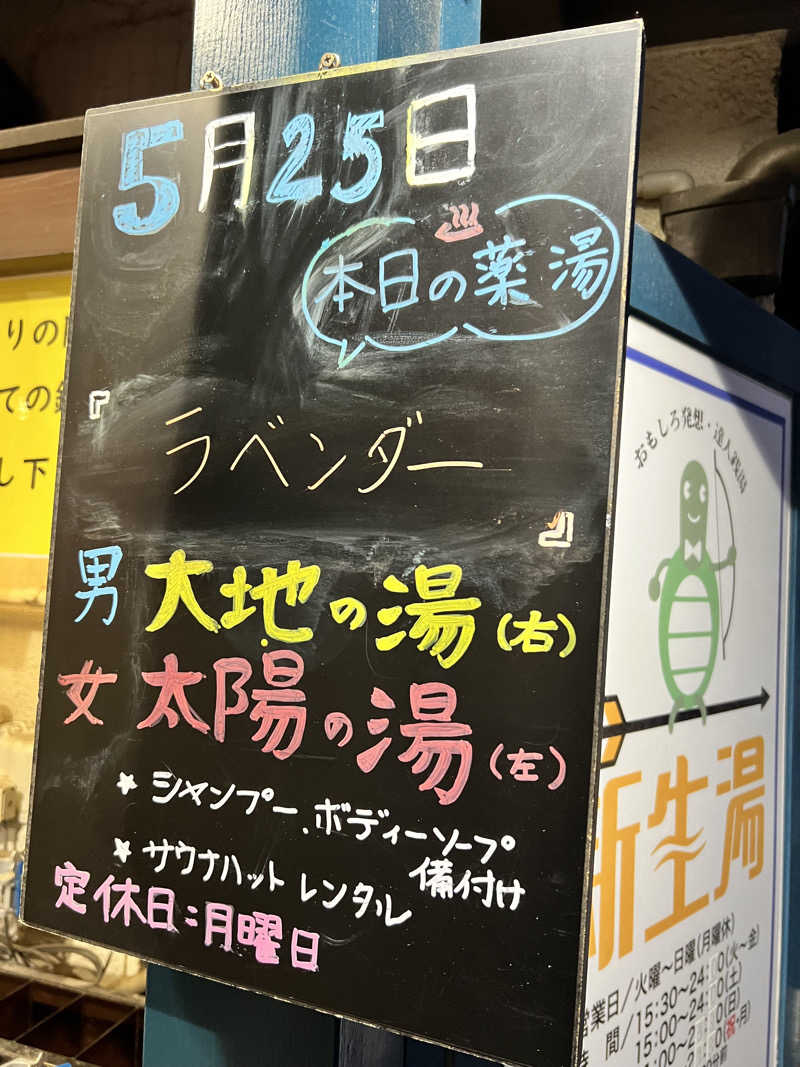 5月25日
♨
本日の薬湯
『
ラベンダー
』
男 大地の湯(右)
女 太陽の湯(左)
★ シャンプー、ボディーソープ
備付け
★ サウナハット レンタル
定休日:月曜日
りの
ての
し下
おもしろ発想・達人
新生湯
営業日/火曜〜日曜(月曜休)
時 間/15:30〜24:00(火〜金)
15:00〜24:00(土)